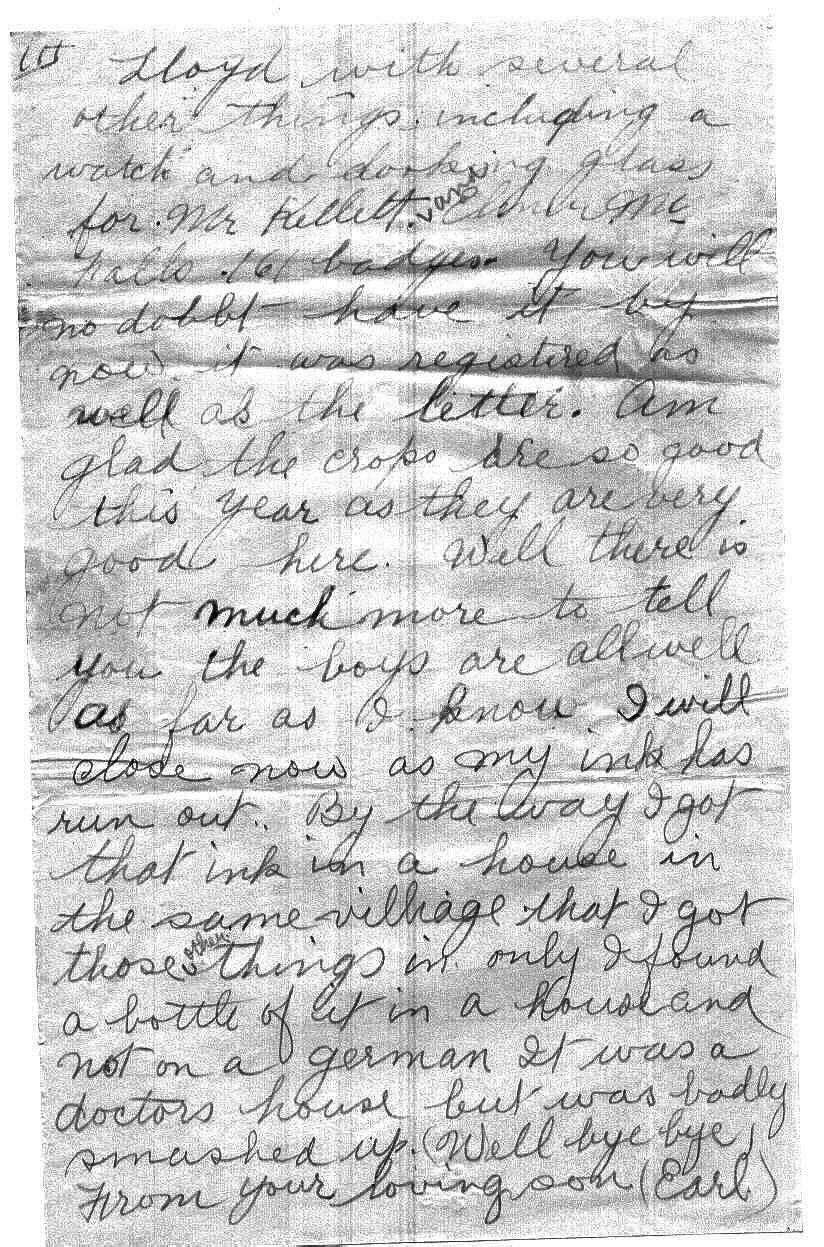 Lloyd with several
other things including a
watch and looking glass
for Mr Kellett. and
Falls 161 badges. You will
no dobbt have it by
now. it was registired as
well as the letter. Am
glad the crops are so good
this year as they are very
good here. Well there is
not much more to tell
you the boys are all well
as far as I know I will
close now as my ink has
run out. By the way I got
that ink in a house in
the same villiage that I got
those other things in only I found
a bottle of it in a house and
not on a german It was a
doctors house but was badly
smashed up. (Well bye bye,
From your loving son (Earl)